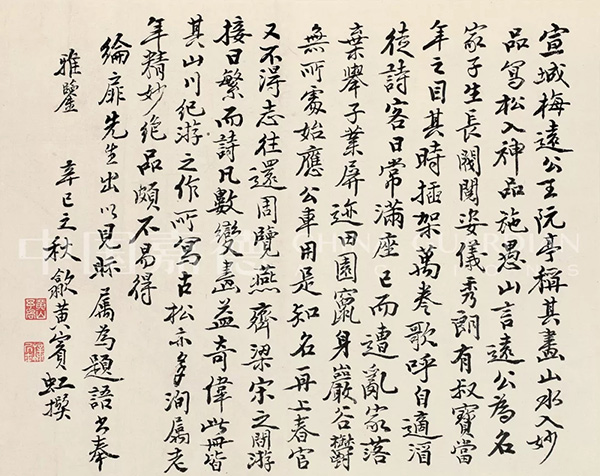 宣城梅遠公王阮亭稱其畫山水入妙
品寫松入神品施愚山言遠公為名
家子生長閥閱姿儀秀朗有叔寶當
年之目其時插架萬卷歌呼自適酒
徒詩客日常滿座已而遭亂家落
棄舉子業屏迹田園竄身巖谷欝
無所處始應公車用是知名再上春官
又不得志往還周覽燕齊梁宋之間游
接日繁而詩凡數變畫益奇偉此冊皆
其山川紀游之作所寫古松亦多洵屬老
年精妙絕品頗不易得
綸扉先生出以見眎屬為題語書奉
雅鑒 辛巳立秋歙黃賓虹撰
中国嘉德